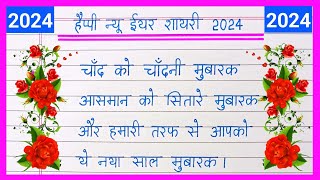 2024 हैप्पी न्यू ईयर शायरी 2024 2024
चाँद को चाँदनी मुबारक
आसमान को सितारे मुबारक
और हमारी तरफ से आपको
ये नया साल मुबारक।